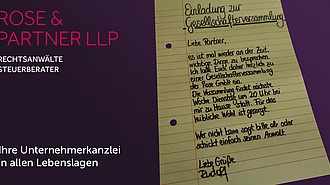 ROSE &
PARTNER LLP
RECHTSANWÄLTE
STEUERBERATER
Ihre Unternehmerkanzlei
in allen Lebenslagen
Einladung zur
Gesellschafterversammlung
Liebe Partner,
es ist mal wieder an der Zeit,
wichtige Dinge zu besprechen.
Ich lade Euch daher herzlich zu
einer Gesellschafterversammlung
der Rose GmbH ein.
Die Versammlung findet nächste
Woche Dienstag um 20 Uhr bei
mir zu Hause statt. Für das
leibliche Wohl ist gesorgt.
Wer nicht kann sagt bitte ab oder
schickt einfach seinen Anwalt.
Liebe Grüße